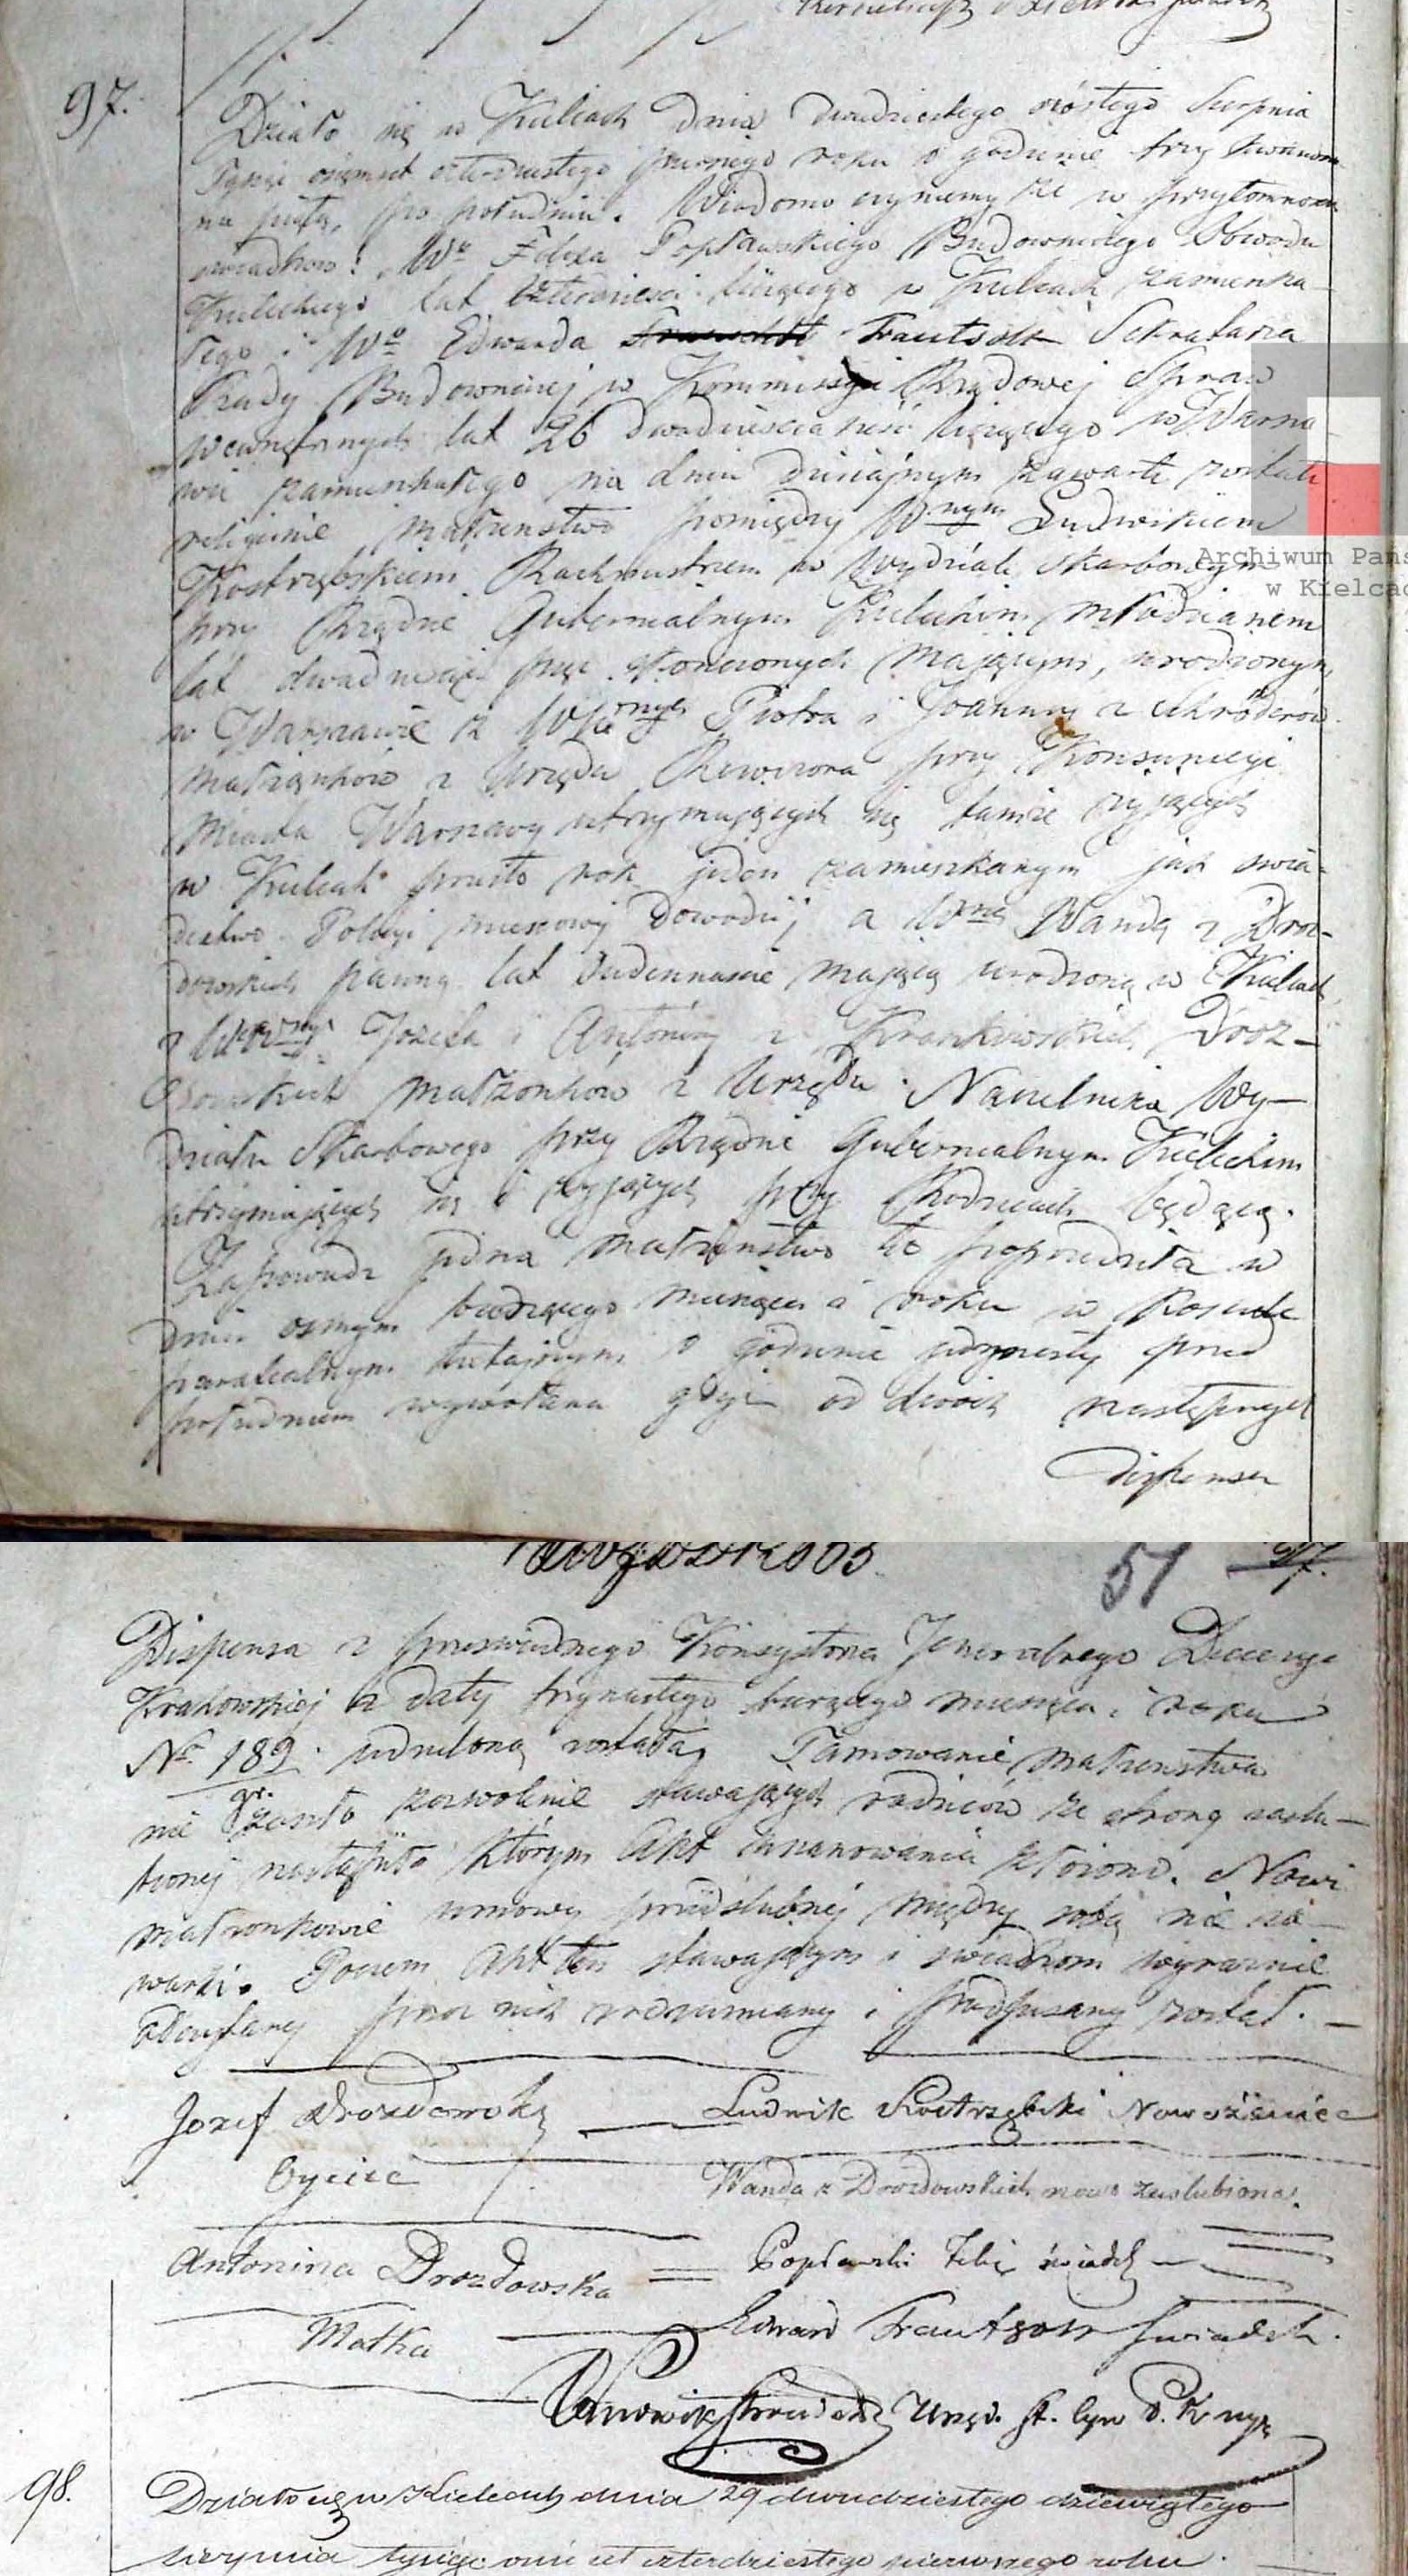 97.
Działo się w Kielcach dnia dwudziestego szóstego Sierpnia
Tysiąc osiemset czterdziestego pierwszego roku o godzinie trzy kwadran-
na piątą, po południu. Wiadomo czyniemy że w przytomności
swiadków: Wo Felixa Popławskiego Budowniczego Obwodu
Kieleckiego lat czterdzieści liczącego w Kielcach zamieszka-
łego i Wo Edwarda Trautsolt Sekretarza
Rady Budowniczej w Kommissyi Rządowej Spraw
wewnętrznych lat 26 dwadzieścia sześć liczącego w Warsza-
wie zamieszkałego na dniu dzisiejszym zawarte zostało
religijnie małżeństwo pomiędzy Wnym Ludwikiem
Kostrzębskiem Rachmistrzem w Wydziale Skarbowym
przy Rządzie Gubernialnym Kieleckim młodzianem
lat dwadzieścia pięć skonczonych mającym, urodzonym
w Warszawie z WWnych Piotra i Joanny z Schröderów
małżonków z Urzędu Rewizora przy Konsumcyi
Miasta Warszawy utrzymujących się tamże żyjących
w Kielcach przeszło rok jeden zamieszkanym jak swia-
dectwo Policyi miescowej dowodzi, a Wną Wandą z Droz-
dowskich panną lat siedemnaście mającą urodzoną w Kielcach
z WWnych Jozefa i Antoniny z Kraikowskich Droz-
dowskich małżonków z Urzędu Naczelnika Wy-
działu Skarbowego przy Rządzie Gubernialnym Kieleckim
utrzymujących się i żyjących przy Rodzicach będącą.
Zapowiedz jedna małżeństwo to poprzedziła w
dniu osmym bieżącego miesiąca i roku w Kosciele
parafialnym tutejszym o godzinie jedynastej przed
południem wywołana gdyż od dwóch następnych
dispensa
51
97.
Dispensa z prześwietnego Konsystorza Jeneralnego Diecezyi
Krakowskiej z daty trzynastego bieżącego miesiąca i roku
No 189 udzieloną została, Tamowanie małżenstwa
gr.
nie zaszło zezwolenie stawających rodziców ze strony zaslu-
bionej nastąpiło którym Akt uszanowania złożono. Nowi
małżonkowie umowy przedślubnej między sobą nie za-
warli. Poczem Akt ten stawającym i swiadkom wyraznie
odczytany przez nich zrozumiany i podpisany został. –
Jozef Drozdowski
Oyciec
Ludwik Kostrzębski Nowożeniec
Wanda z Drozdowskich nowo zaslubiona.
Antonina Drozdowska
Matka
Popławski Felix świadek
Edward Trautsolt Swiadek.
Urzęd. St. Cyw P. K
98.
Działo się w Kielcach dnia 29 dwudziestego dziewiątego
sierpnia tysiąc ośmset czterdziestego pierwszego roku.